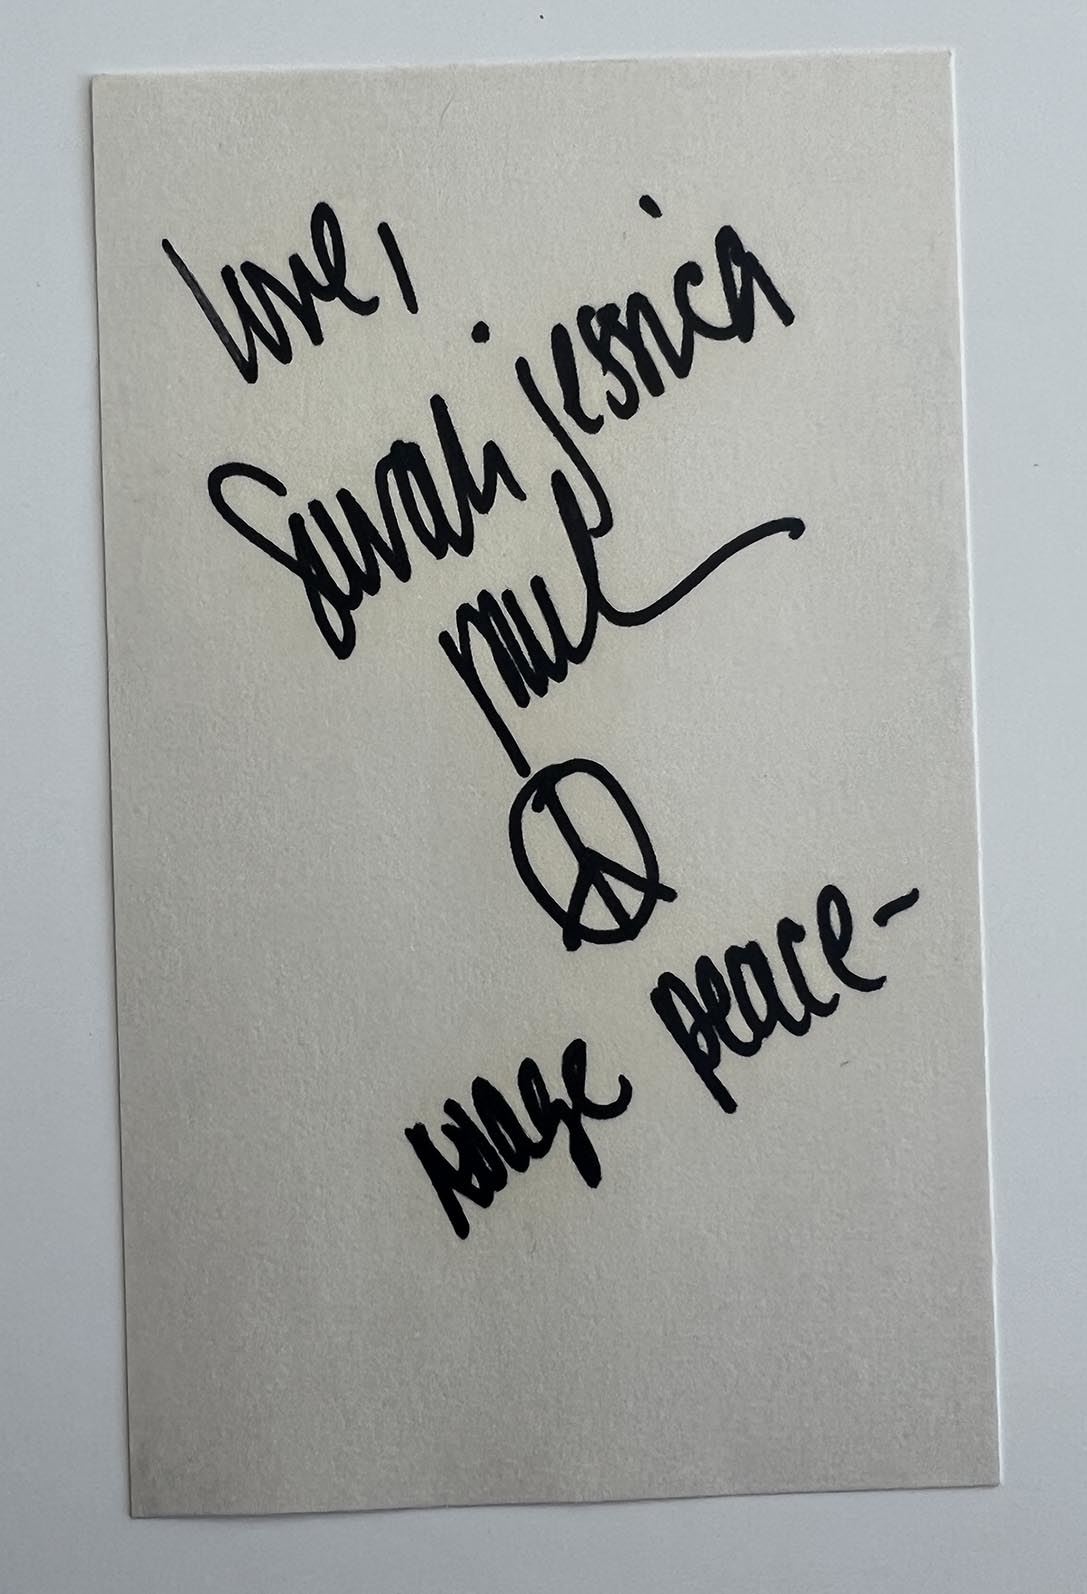 love,
Sarah jessica
wage peace-